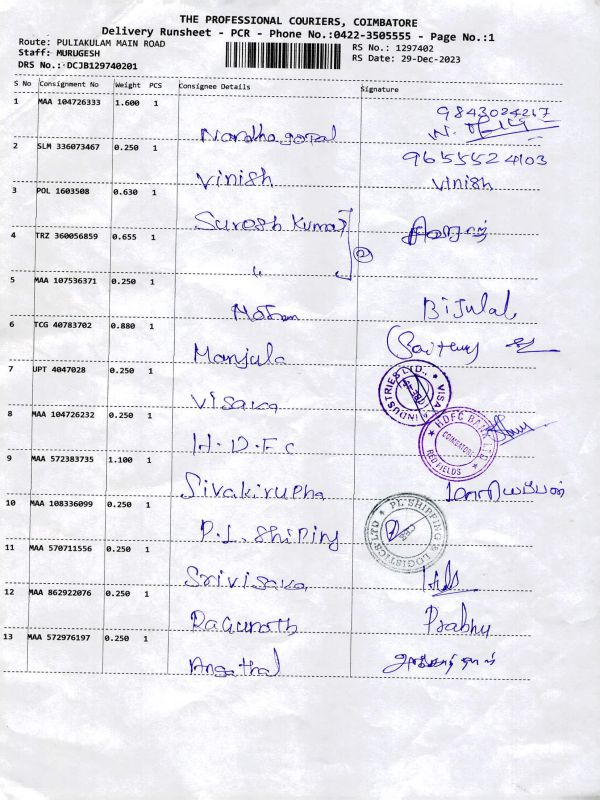 THE PROFESSIONAL COURIERS, COIMBATORE
Delivery Runsheet - PCR - Phone No.:0422-3505555 - Page No.:1
Route: PULIAKULAM MAIN ROAD
RS No.: 1297402
Staff: MURUGESH
RS Date: 29-Dec-2023
DRS No.: DCJB129740201
S No Consignment No Weight PCS Consignee Details Signature
1 MAA 104726333 1.600 1
9843024217
Nandhagopal
2 SLM 336073467 0.250 1 9655524103
Vinish Vinish
3 POL 1603508 0.630 1
Suresh Kumar
4 TRZ 360056859 0.655 1
"
5 MAA 107536371 0.250 1
Mohan Bijulal
6 TCG 40783702 0.880 1
Manjula
7 UPT 4047028 0.250 1
Visaka
VISAKA INDUSTRIES LTD.,
8 MAA 104726232 0.250 1
H.D.F.C
HDFC BANK LTD
COIMBATORE
RED FIELDS
9 MAA 572383735 1.100 1
Sivakirupha
10 MAA 108336099 0.250 1
P.L. Shiping
PL SHIPPING & LOGISTICS LTD
11 MAA 570711556 0.250 1
Srivisaka
12 MAA 862922076 0.250 1
Ragunath Prabhu
13 MAA 572976197 0.250 1
Angathal